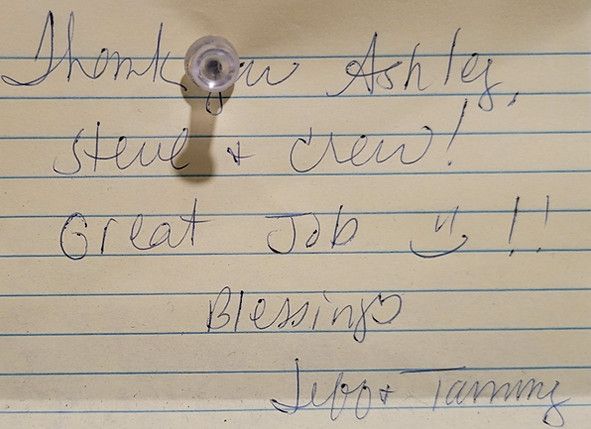 Thank you Ashley,
Steve + crew!
Great Job !!
Blessings
Jeff + Tammy